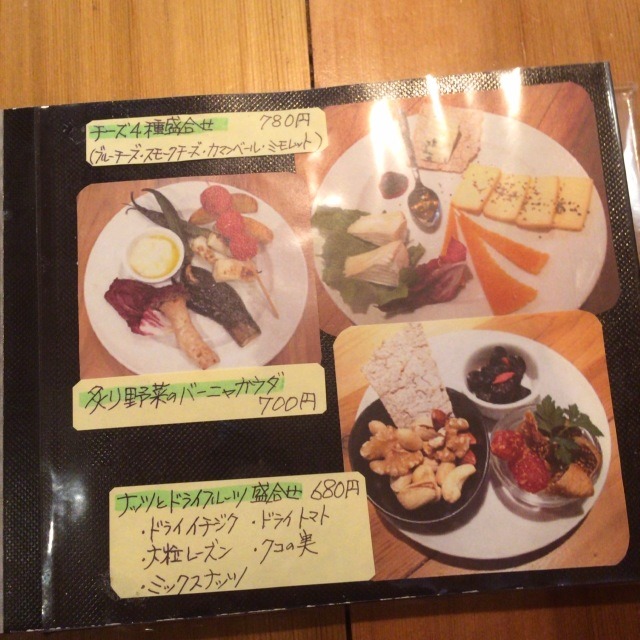 チーズ4種盛合せ 780円
(ブルーチーズ・スモークチーズ・カマンベール・ミモレット)
炙り野菜のバーニャカウダ
700円
ナッツとドライフルーツ盛合せ 680円
・ドライイチジク ・ドライトマト
・大粒レーズン ・クコの実
・ミックスナッツ